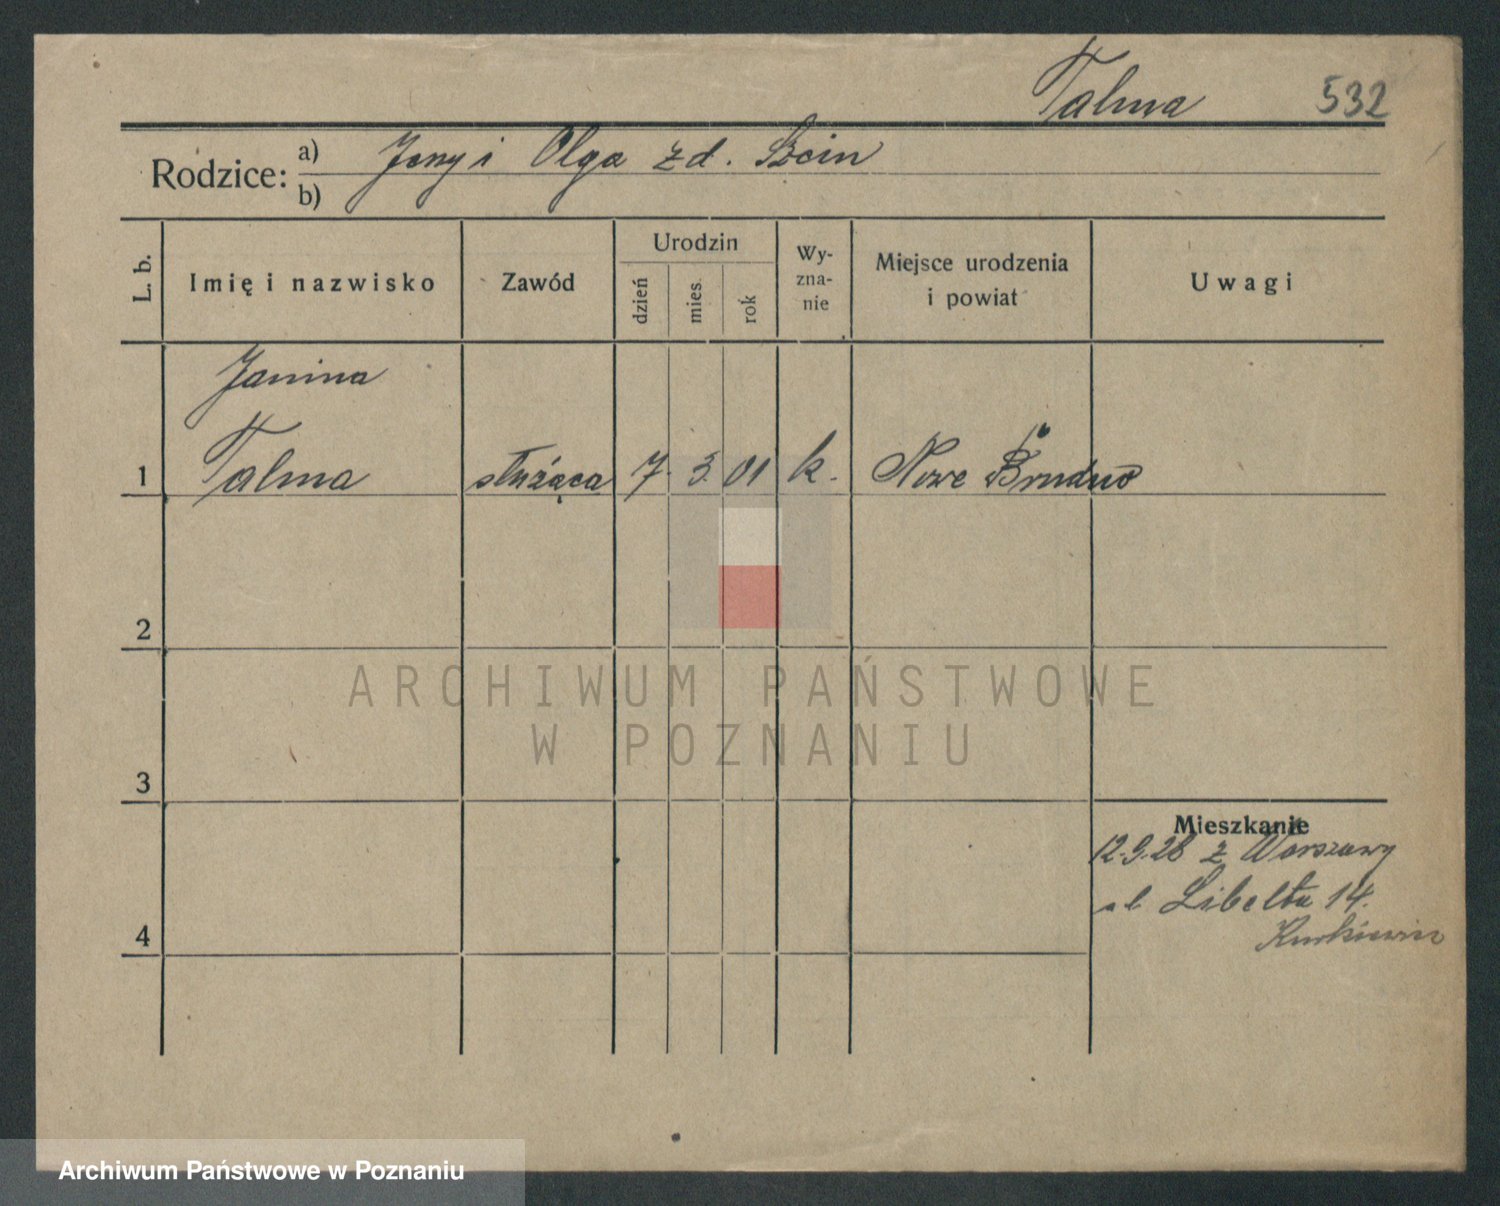 Talma 532
Rodzice: a) Jerzy i Olga z d. Szein
b)
L. b. Imię i nazwisko Zawód Urodzin Wy-zna-nie Miejsce urodzenia i powiat Uwagi
dzień mies. rok
Janina
1 Talma służąca 7. 3. 01 k. Nowe Brudno
2
ARCHIWUM PAŃSTWOWE
W POZNANIU
3
Mieszkanie
12.9.28 z Warszawy
Libelta 14.
4
Archiwum Państwowe w Poznaniu